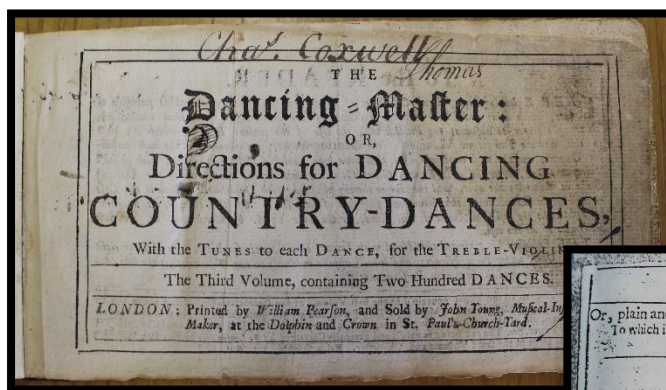 Chas. Coxwell
Thomas
THE
Dancing-Maſter:
OR,
Directions for DANCING
COUNTRY-DANCES,
With the TUNES to each DANCE, for the TREBLE-VIOLIN
The Third Volume, containing Two Hundred DANCES.
LONDON: Printed by William Pearſon, and Sold by John Young, Muſical-In
Maker, at the Dolphin and Crown in St. Paul's-Church-Yard.
Or, plain and
To which i